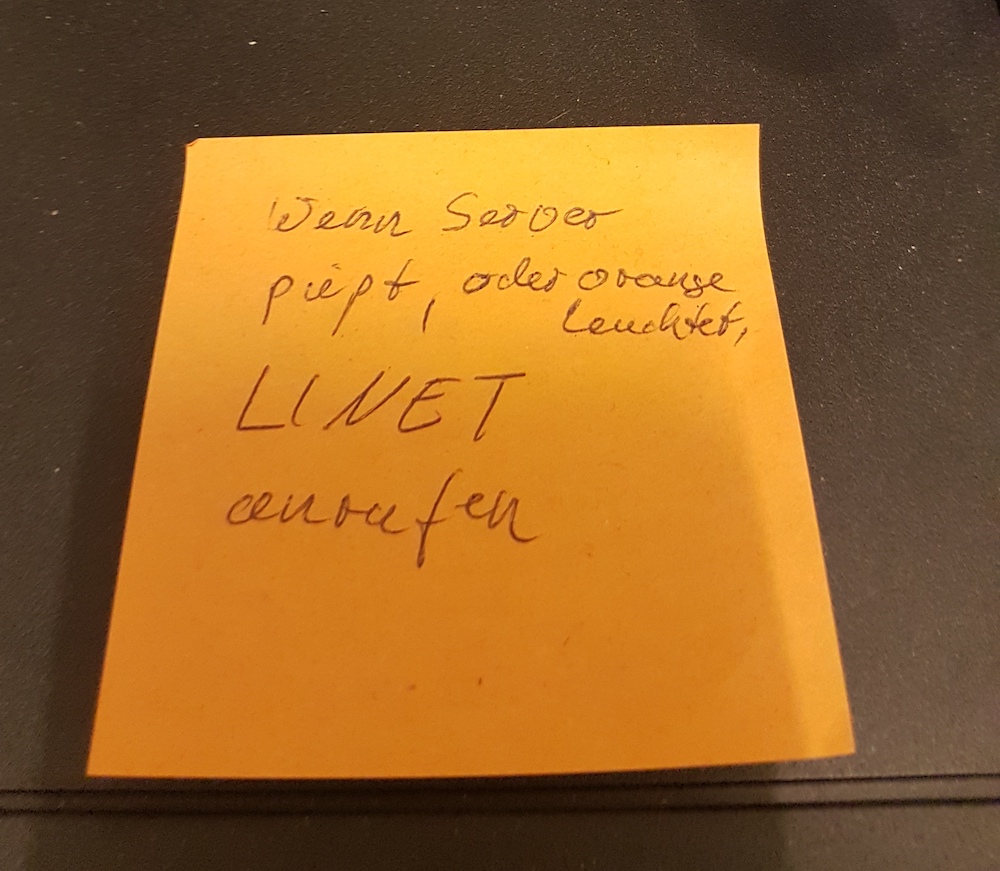 Wenn Server
piept, oder orange
leuchtet,
LINET
anrufen